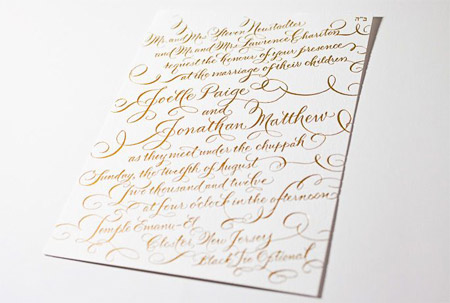 ב״ה
Mr. and Mrs. Steven Neustadter
and Mr. and Mrs. Lawrence Chariton
request the honour of your presence
at the marriage of their children
Joëlle Paige
and
Jonathan Matthew
as they meet under the chuppah
Sunday, the twelfth of August
Two thousand and twelve
at four o'clock in the afternoon
Temple Emanu-El
Closter, New Jersey
Black Tie Optional